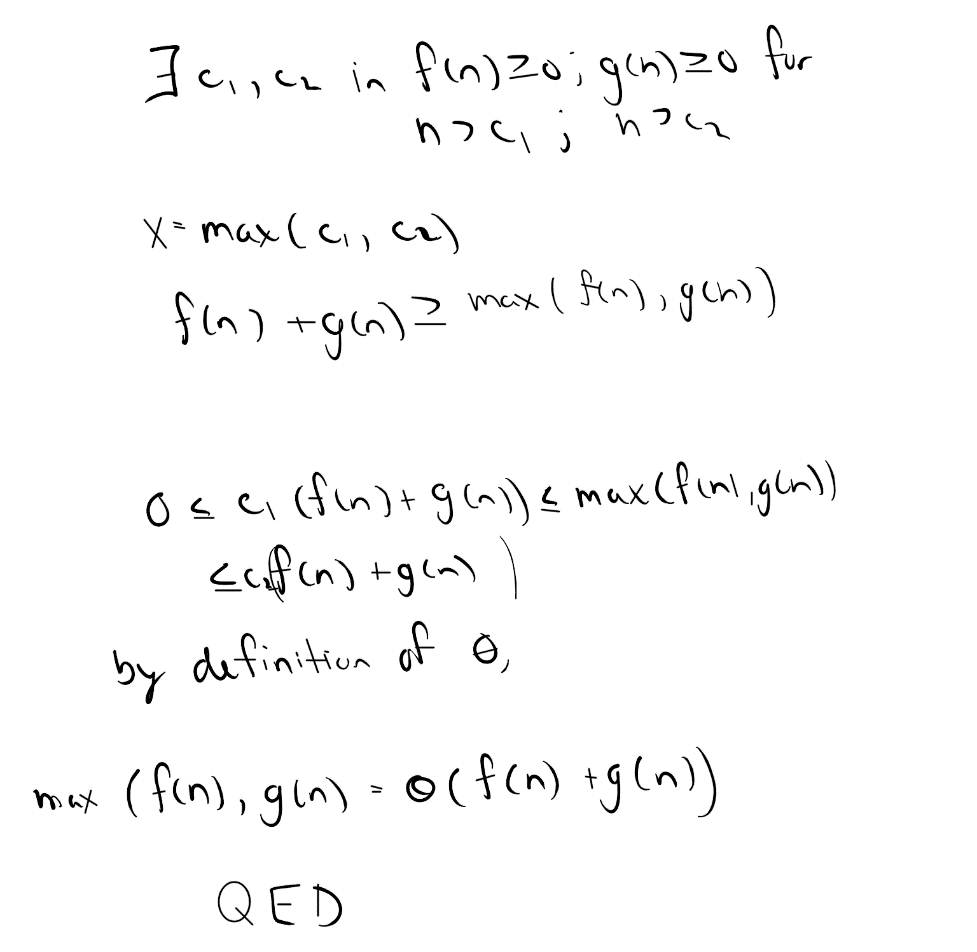 ∃ c₁, c₂ in f(n)≥0; g(n)≥0 for
n>c₁ ; n>c₂
x= max(c₁, c₂)
f(n) +g(n) ≥ max(f(n), g(n))
0 ≤ c₁ (f(n)+ g(n)) ≤ max(f(n),g(n))
≤c₂(f(n) +g(n) )
by definition of Θ,
max (f(n), g(n) = Θ(f(n) +g(n))
QED